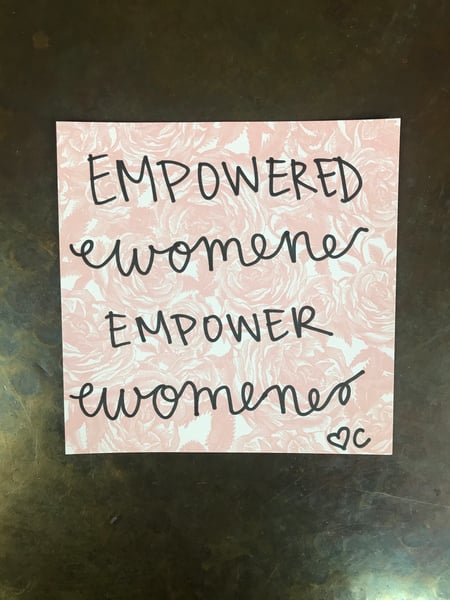 EMPOWERED
women
EMPOWER
women
♡C